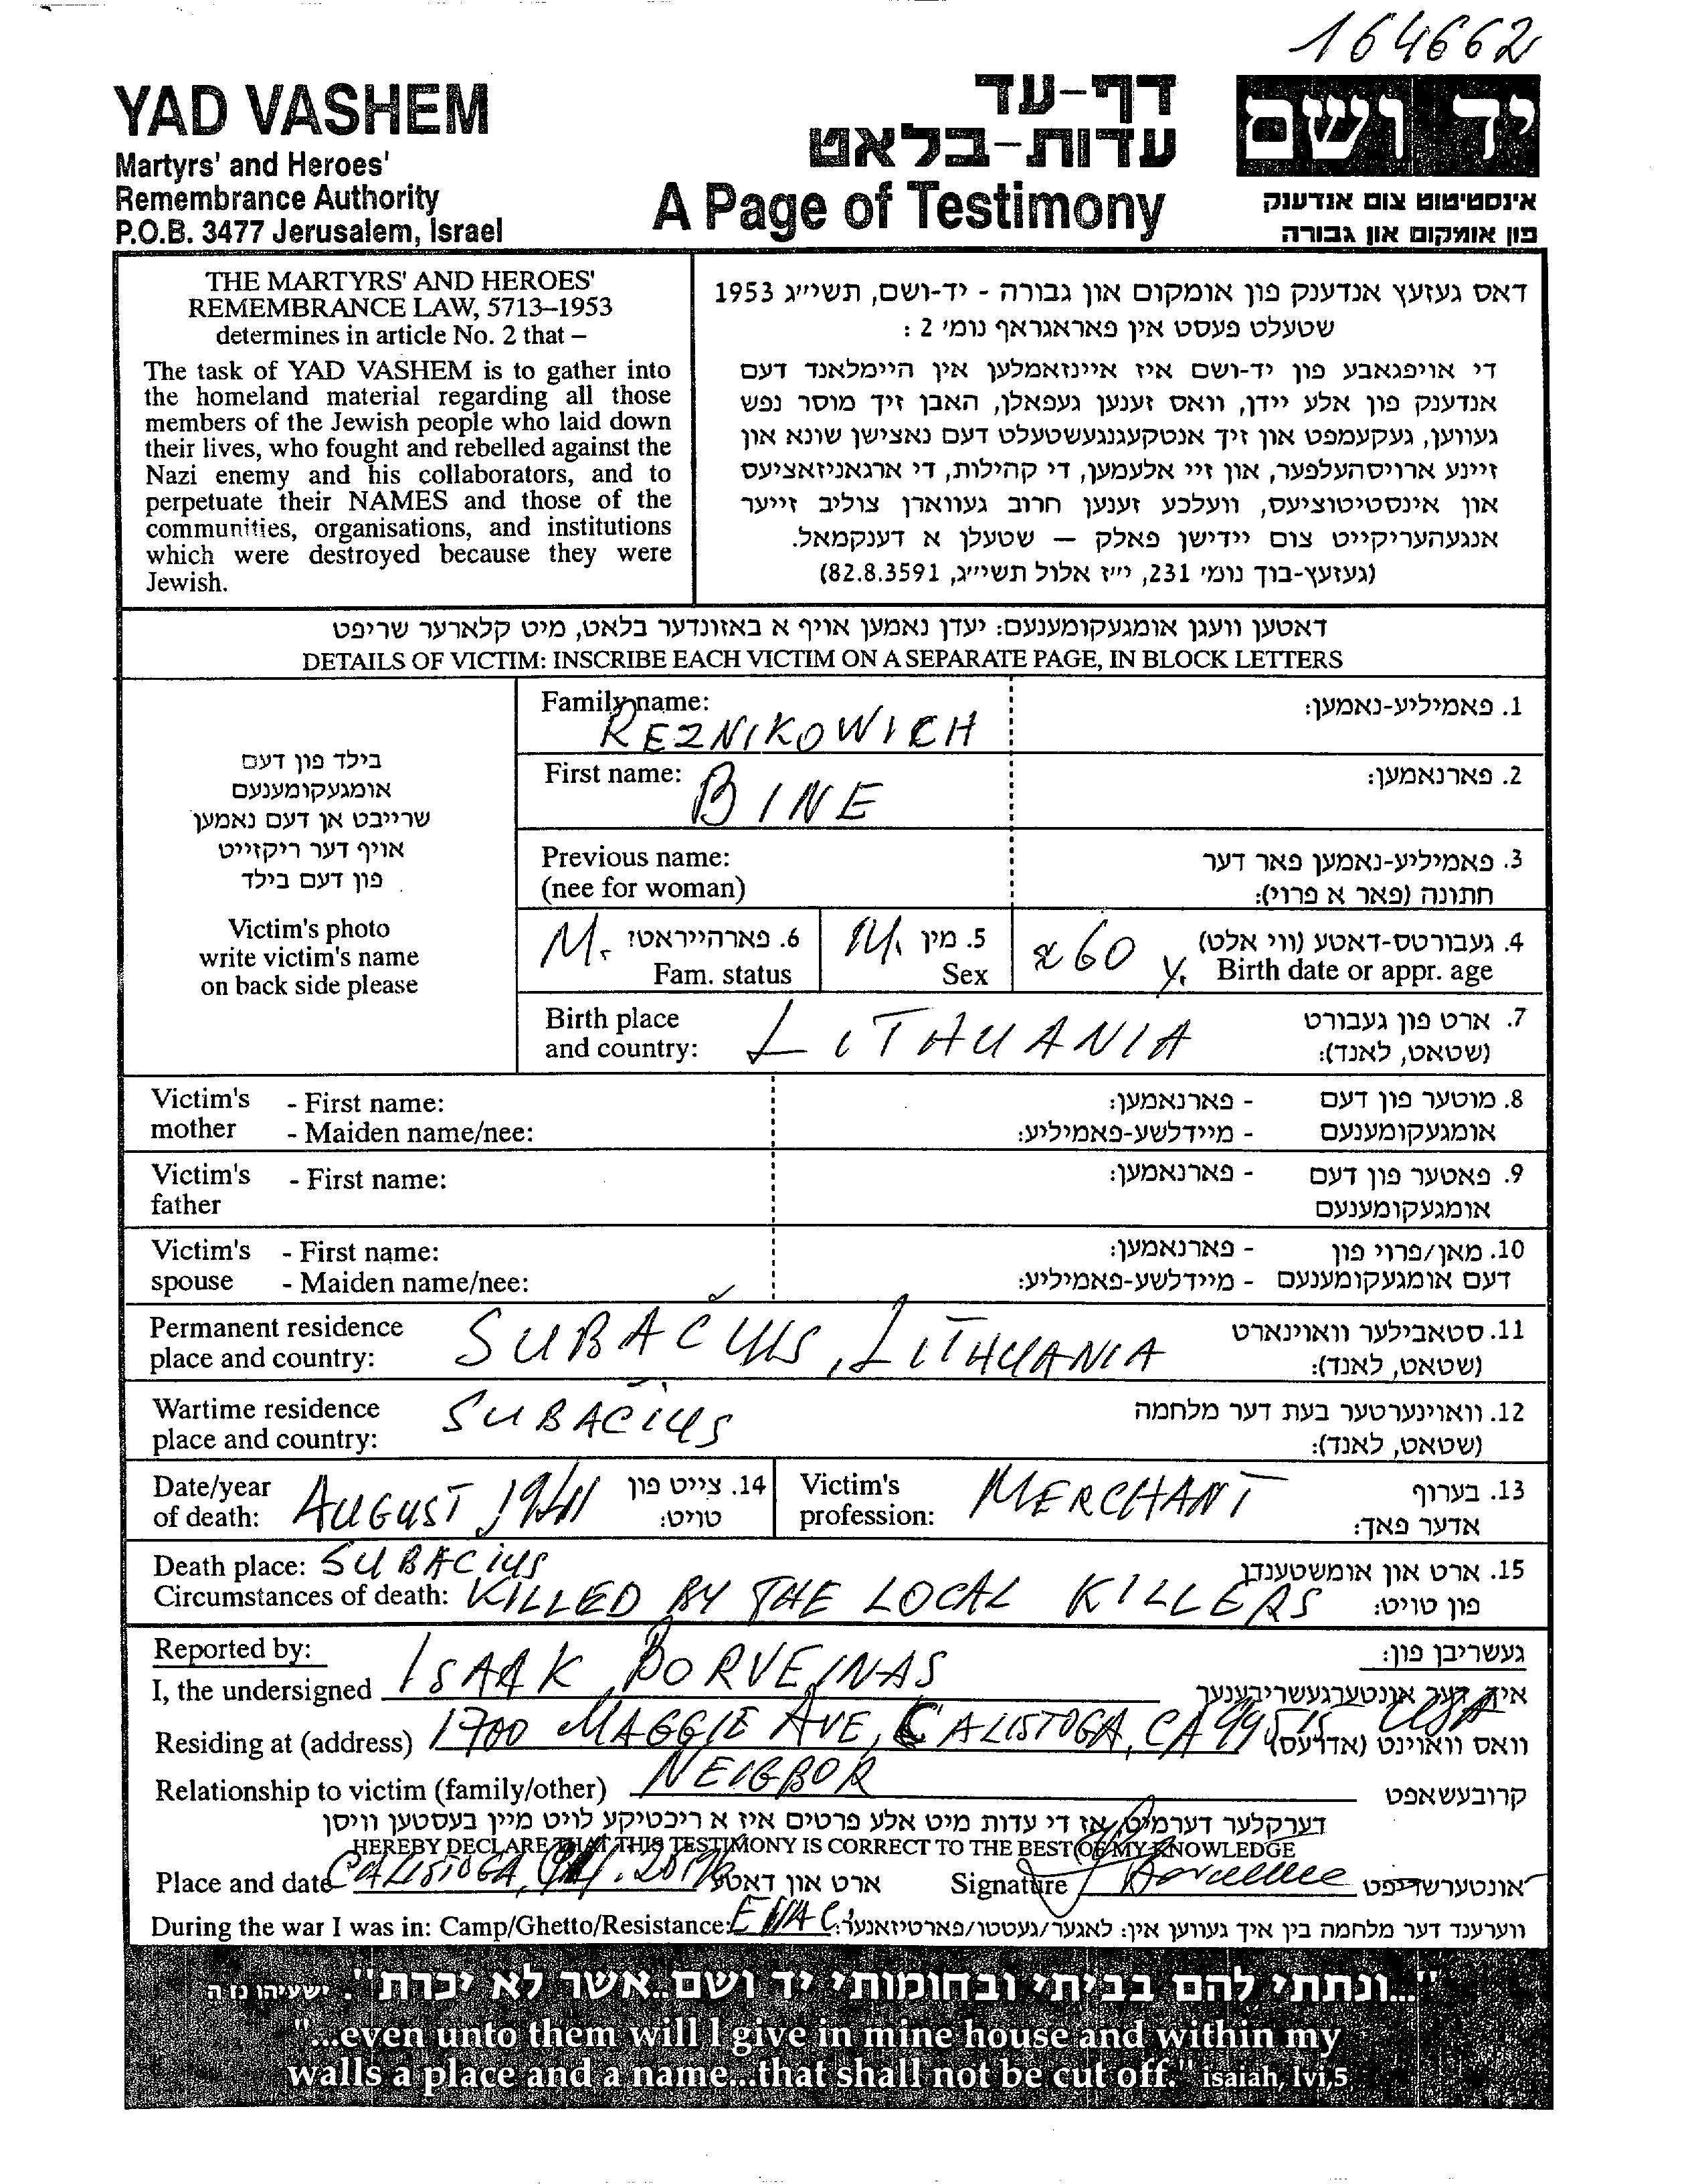 164662
YAD VASHEM
Martyrs' and Heroes'
Remembrance Authority
P.O.B. 3477 Jerusalem, Israel
דף-עד
עדות-בלאט
A Page of Testimony
יד ושם
אינסטיטוט צום אנדענק
פון אומקום און גבורה
THE MARTYRS' AND HEROES'
REMEMBRANCE LAW, 5713–1953
determines in article No. 2 that –
The task of YAD VASHEM is to gather into
the homeland material regarding all those
members of the Jewish people who laid down
their lives, who fought and rebelled against the
Nazi enemy and his collaborators, and to
perpetuate their NAMES and those of the
communities, organisations, and institutions
which were destroyed because they were
Jewish.
דאס געזעץ אנדענק פון אומקום און גבורה - יד-ושם, תשי״ג 1953
שטעלט פעסט אין פאראגראף נומ׳ 2 :
די אויפגאבע פון יד-ושם איז איינזאמלען אין היימלאנד דעם
אנדענק פון אלע יידן, וואס זענען געפאלן, האבן זיך מוסר נפש
געווען, געקעמפט און זיך אנטקעגנגעשטעלט דעם נאצישן שונא און
זיינע ארויסהעלפער, און זיי אלעמען, די קהילות, די ארגאניזאציעס
און אינסטיטוציעס, וועלכע זענען חרוב געווארן צוליב זייער
אנגעהעריקייט צום יידישן פאלק — שטעלן א דענקמאל.
(געזעץ-בוך נומ׳ 231, י״ז אלול תשי״ג, 82.8.3591)
דאטען וועגן אומגעקומענעם: יעדן נאמען אויף א באזונדער בלאט, מיט קלארער שריפט
DETAILS OF VICTIM: INSCRIBE EACH VICTIM ON A SEPARATE PAGE, IN BLOCK LETTERS
בילד פון דעם
אומגעקומענעם
שרייבט אן דעם נאמען
אויף דער ריקזייט
פון דעם בילד
Victim's photo
write victim's name
on back side please
Family name: REZNIKOWICH 1. פאמיליע-נאמען:
First name: BINE 2. פארנאמען:
Previous name: 3. פאמיליע-נאמען פאר דער
(nee for woman) חתונה (פאר א פרוי):
M. 6. פארהייראט? M. 5. מין ≈60 y. 4. געבורטס-דאטע (ווי אלט)
Fam. status Sex Birth date or appr. age
Birth place LITHUANIA 7. ארט פון געבורט
and country: (שטאט, לאנד):
Victim's - First name: - פארנאמען: 8. מוטער פון דעם
mother - Maiden name/nee: - מיידלשע-פאמיליע: אומגעקומענעם
Victim's - First name: - פארנאמען: 9. פאטער פון דעם
father אומגעקומענעם
Victim's - First name: - פארנאמען: 10. מאן/פרוי פון
spouse - Maiden name/nee: - מיידלשע-פאמיליע: דעם אומגעקומענעם
Permanent residence SUBAČIUS, LITHUANIA 11. סטאבילער וואוינארט
place and country: (שטאט, לאנד):
Wartime residence SUBAČIUS 12. וואוינערטער בעת דער מלחמה
place and country: (שטאט, לאנד):
Date/year AUGUST, 1941 14. צייט פון Victim's MERCHANT 13. בערוף
of death: טויט: profession: אדער פאך:
Death place: SUBACIUS 15. ארט און אומשטענדן
Circumstances of death: KILLED BY THE LOCAL KILLERS פון טויט:
Reported by: געשריבן פון:
I, the undersigned ISAAK BORVEINAS איך, דער אונטערגעשריבענער
Residing at (address) 1700 MAGGIE AVE, CALISTOGA, CA 99515 USA וואס וואוינט (אדרעס)
Relationship to victim (family/other) NEIGBOR קרובעשאפט
דערקלער דערמיט, אז די עדות מיט אלע פרטים איז א ריכטיקע לויט מיין בעסטען וויסן
HEREBY DECLARE THAT THIS TESTIMONY IS CORRECT TO THE BEST OF MY KNOWLEDGE
Place and date CALISTOGA, ארט און דאטע Signature אונטערשריפט
During the war I was in: Camp/Ghetto/Resistance: ווערענד דער מלחמה בין איך געווען אין: לאגער/געטטו/פארטיזאנער:
"...ונתתי להם בביתי ובחומותי יד ושם..אשר לא יכרת". ישעיהו נו ה
"...even unto them will I give in mine house and within my
walls a place and a name...that shall not be cut off." isaiah, lvi,5